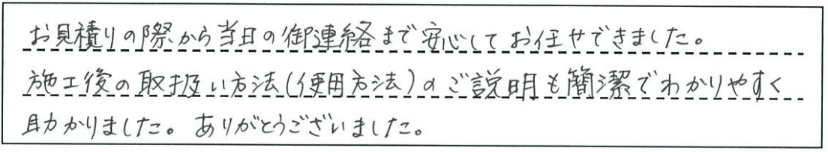 お見積りの際から当日の御連絡まで安心してお任せできました。
施工後の取扱い方法(使用方法)のご説明も簡潔でわかりやすく
助かりました。ありがとうございました。